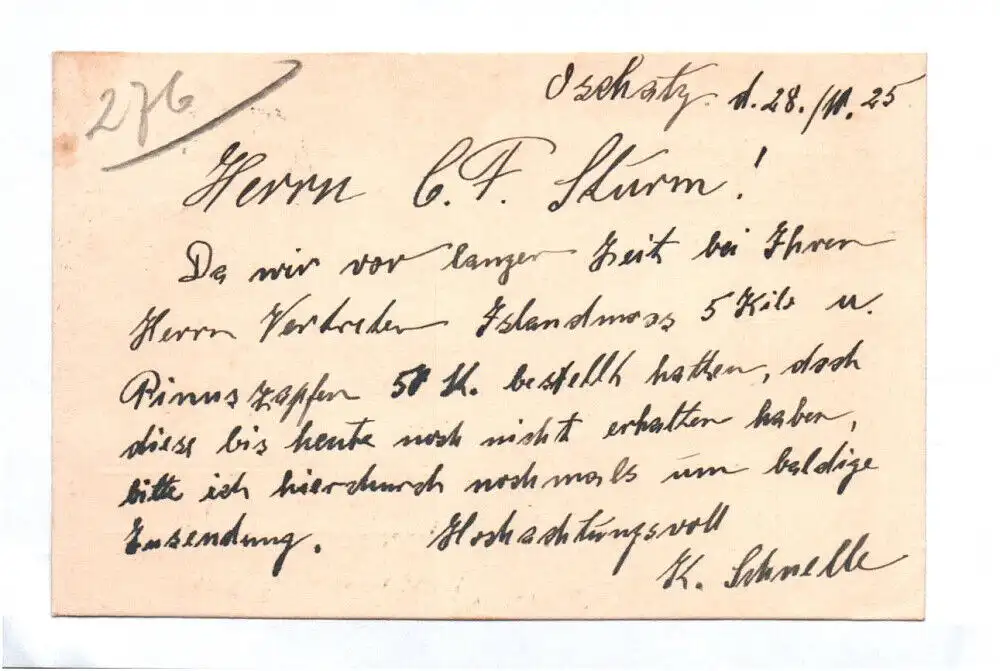 276
Oschatz d. 28./11. 25
Herrn C. F. Sturm!
Da wir vor langer Zeit bei Ihren
Herrn Vertreter Islandmoos 5 Kilo u.
Pinus zapfen 50 K. bestellt hatten, doch
diese bis heute noch nicht erhalten haben,
bitte ich hierdurch nochmals um baldige
Zusendung. Hochachtungsvoll
K. Schnelle